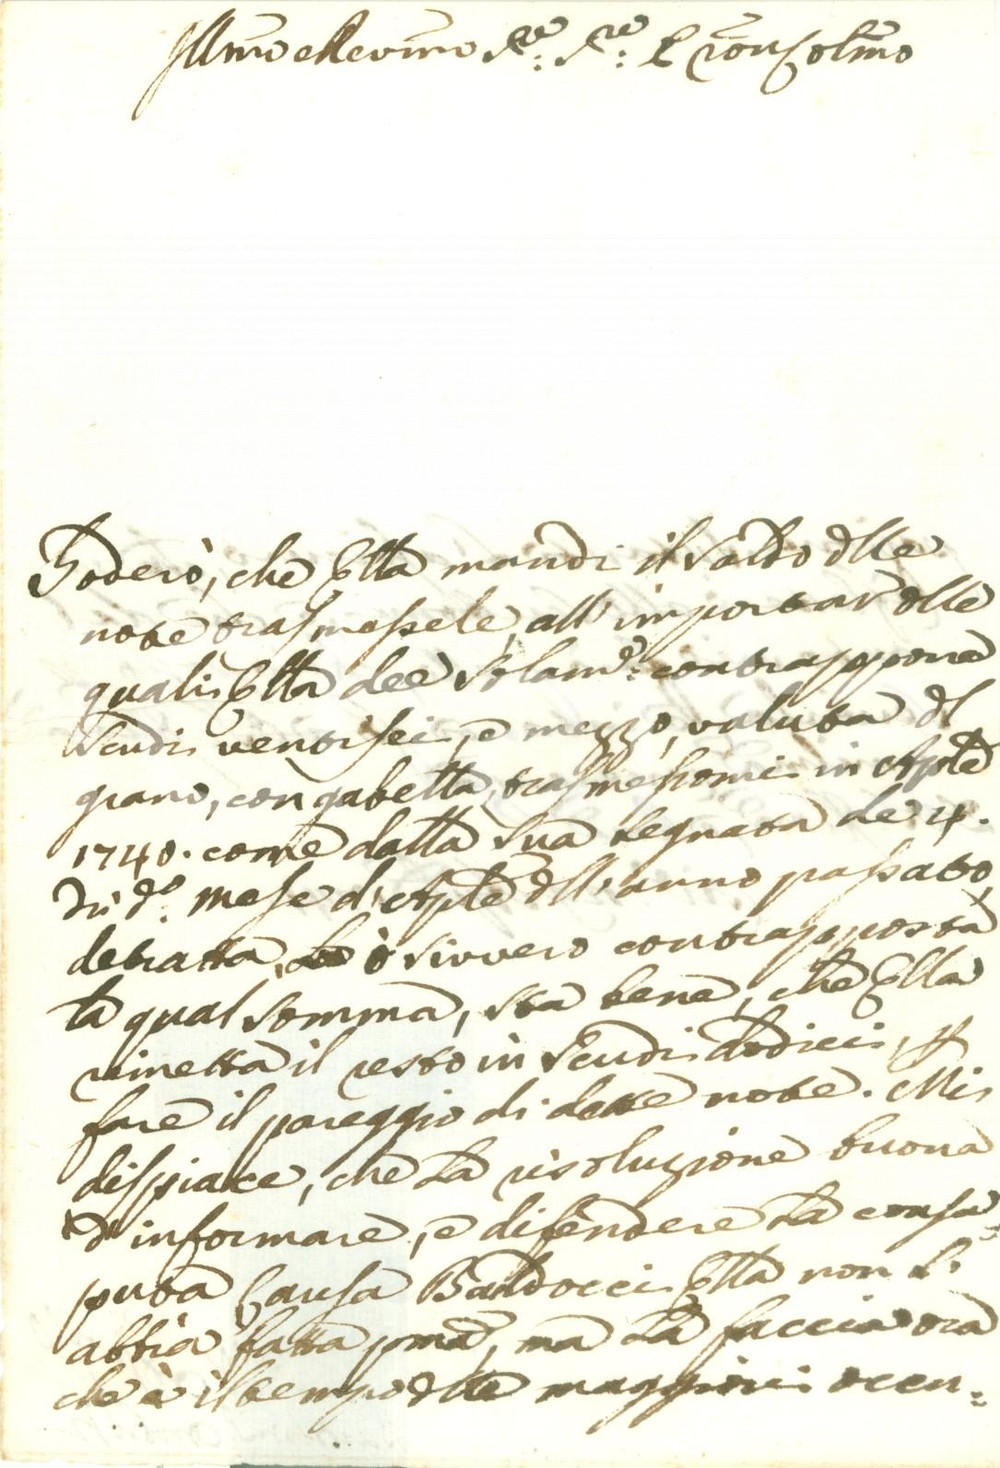 Illmo e Revmo Sre: Sre: e Pron Colmo
Goderò, che Ella mandi il saldo dlle
note trasmessele, all' importar dlle
quali Ella dee solamte: contrapporre
scudi ventisei, e mezzo, valuta dl
grano, con gabella, trasmessomi in Aple
1740. come dalla sua segnata de 4.
di do. mese d'Aple dll'anno passato,
detratta, ò sivvero contrapposta
la qual somma, sta bene, che Ella
rimetta il resto in scudi dodici, p
fare il pareggio di dette note. Mi
dispiace, che la risoluzione buona
d'informare, e difendere la consa=
puta Causa Baldocci Ella non l'
abbia fatta pma, ma la faccia ora
che è il tempo dlle maggiori occu=